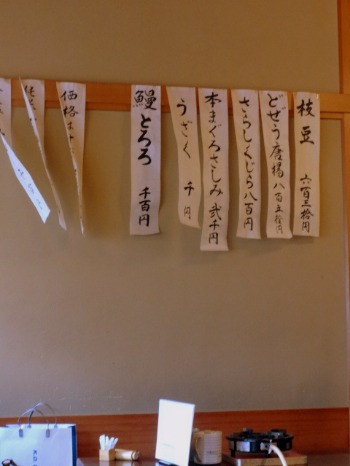 枝豆 六百五拾円
どぜう唐揚 八百五拾円
さらしくじら 八百円
本まぐろさしみ 弐千円
うざく 千円
鰻とろろ 千百円
価格は